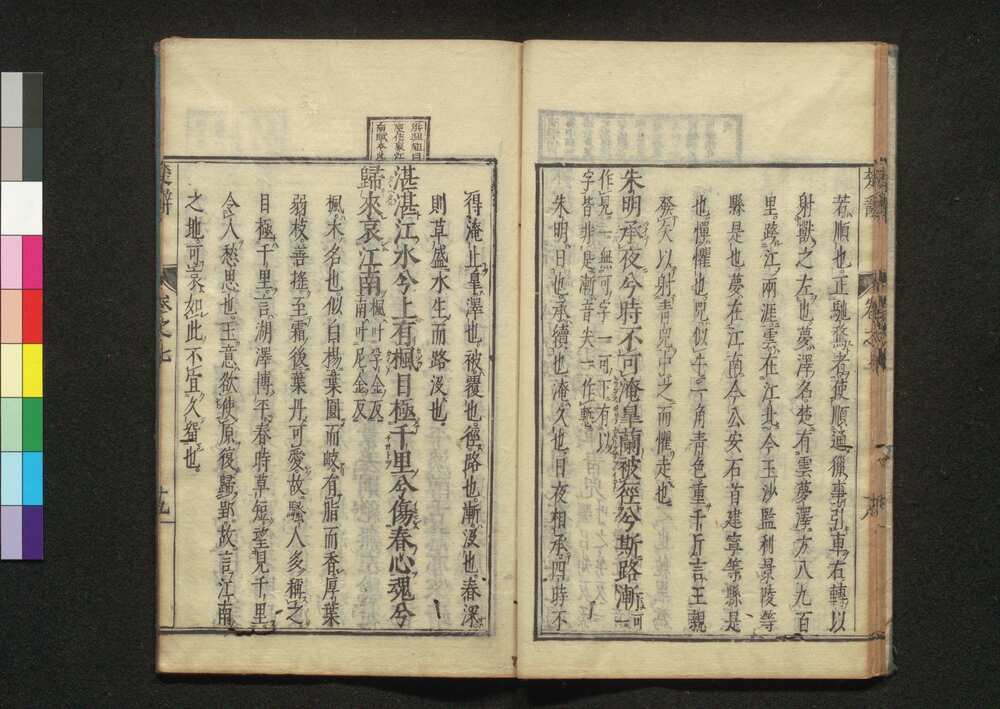 若順也正馳騖者使順通獵事引車右轉以
射獸之左也夢澤名楚有雲夢澤方八九百
里跨江兩涯雲在江北今玉沙監利景陵等
縣是也夢在江南今公安石首建寧等縣是
也憚懼也兕似牛一角青色重千斤言王親
發矢以射青兕中之而懼走也
朱明承夜兮時不可淹皐蘭被徑兮斯路漸
可一
作見一無可字一可下有以
字皆非是漸音失一作
朱明日也承續也淹久也日夜相承四時不
得淹止皐澤也被覆也徑路也漸沒也春深
則草盛水生而路沒也
湛湛江水兮上有楓目極千里兮傷春心魂兮
歸來哀江南
楓叶孚金反
南叶尼金反
楓木名也似白楊葉圓而岐有脂而香厚葉
弱枝善搖至霜後葉丹可愛故騷人多稱之
目極千里言湖澤博平春時草短望見千里
令人愁思也王意欲使原復歸郢故言江南
之地可哀如此不宜久留也
楚辭
卷之七
十九